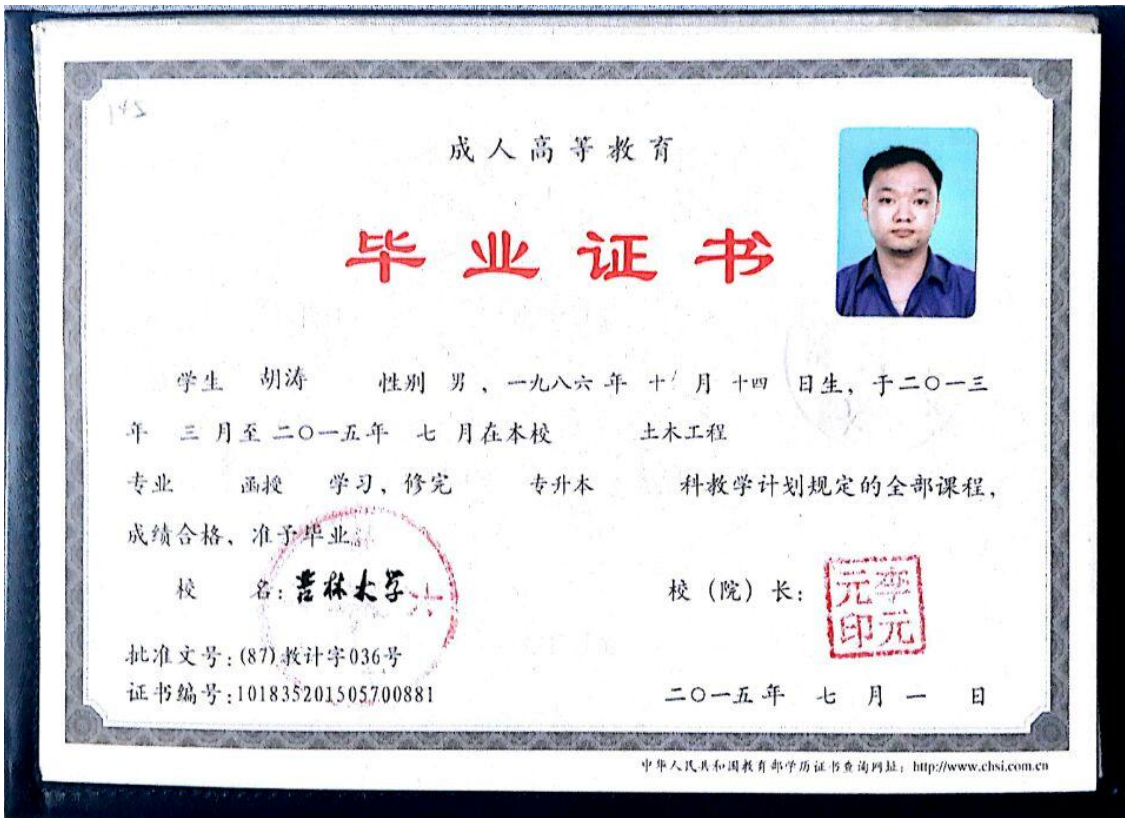 145
成人高等教育
毕业证书
学生 胡涛 性别 男，一九八六年 十 月 十四 日生，于二〇一三
年 三 月至 二〇一五年 七 月在本校 土木工程
专业 函授 学习，修完 专升本 科教学计划规定的全部课程，
成绩合格，准予毕业。
校 名：吉林大学
校（院）长：
李元元印
批准文号：(87)教计字036号
证书编号：101835201505700881
二〇一五年 七 月 一 日
中华人民共和国教育部学历证书查询网址：http://www.chsi.com.cn